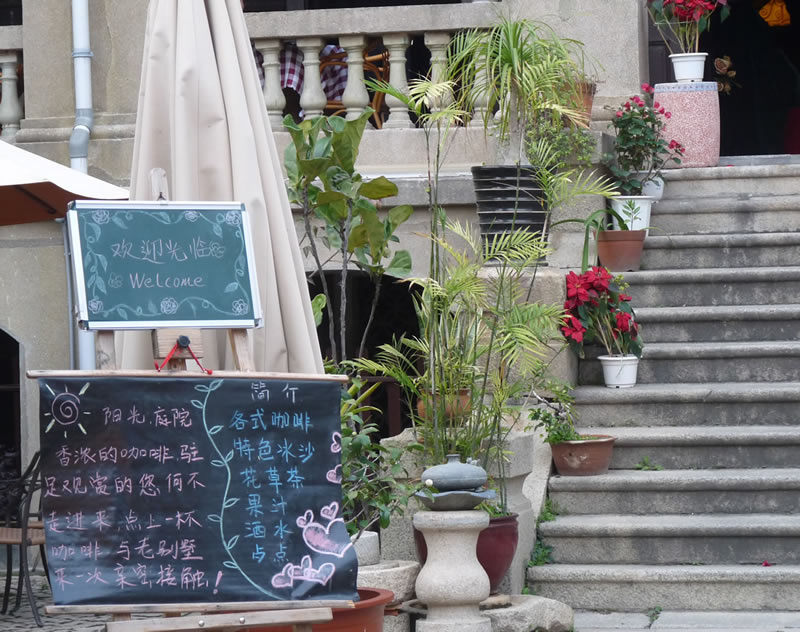 欢迎光临
Welcome
阳光.庭院
香浓的咖啡.驻
足观赏的您.何不
走进来.点上一杯
咖啡.与老别墅
来一次亲密接触!
简介
各式咖啡
特色冰沙
花草茶
果汁
酒水
点点